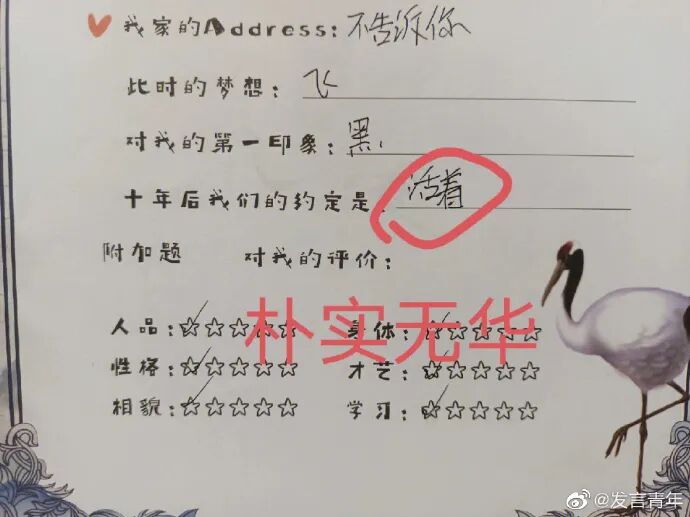 我家的Address:不告诉你
此时的梦想:飞
对我的第一印象:黑
十年后我们的约定是:活着
附加题 对我的评价:
朴实无华
人品:☆☆☆☆☆ 身体:☆☆☆☆☆
性格:☆☆☆☆☆ 才艺:☆☆☆☆☆
相貌:☆☆☆☆☆ 学习:☆☆☆☆☆
@发言青年